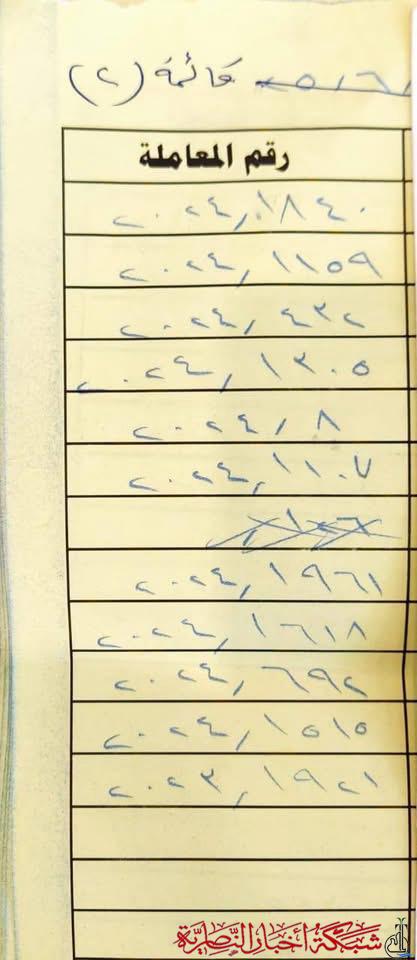 قائمة (٢)
رقم المعاملة
١٨٤٠/٢٠٢٤
١١٥٩/٢٠٢٤
٤٣٢/٢٠٢٤
١٣٠٥/٢٠٢٤
٨/٢٠٢٤
١١٠٧/٢٠٢٤
١٩٦١/٢٠٢٤
١٦١٨/٢٠٢٤
٦٩٢/٢٠٢٤
١٥١٥/٢٠٢٤
١٩٢١/٢٠٢٣
شبكة أخبار الناصرية